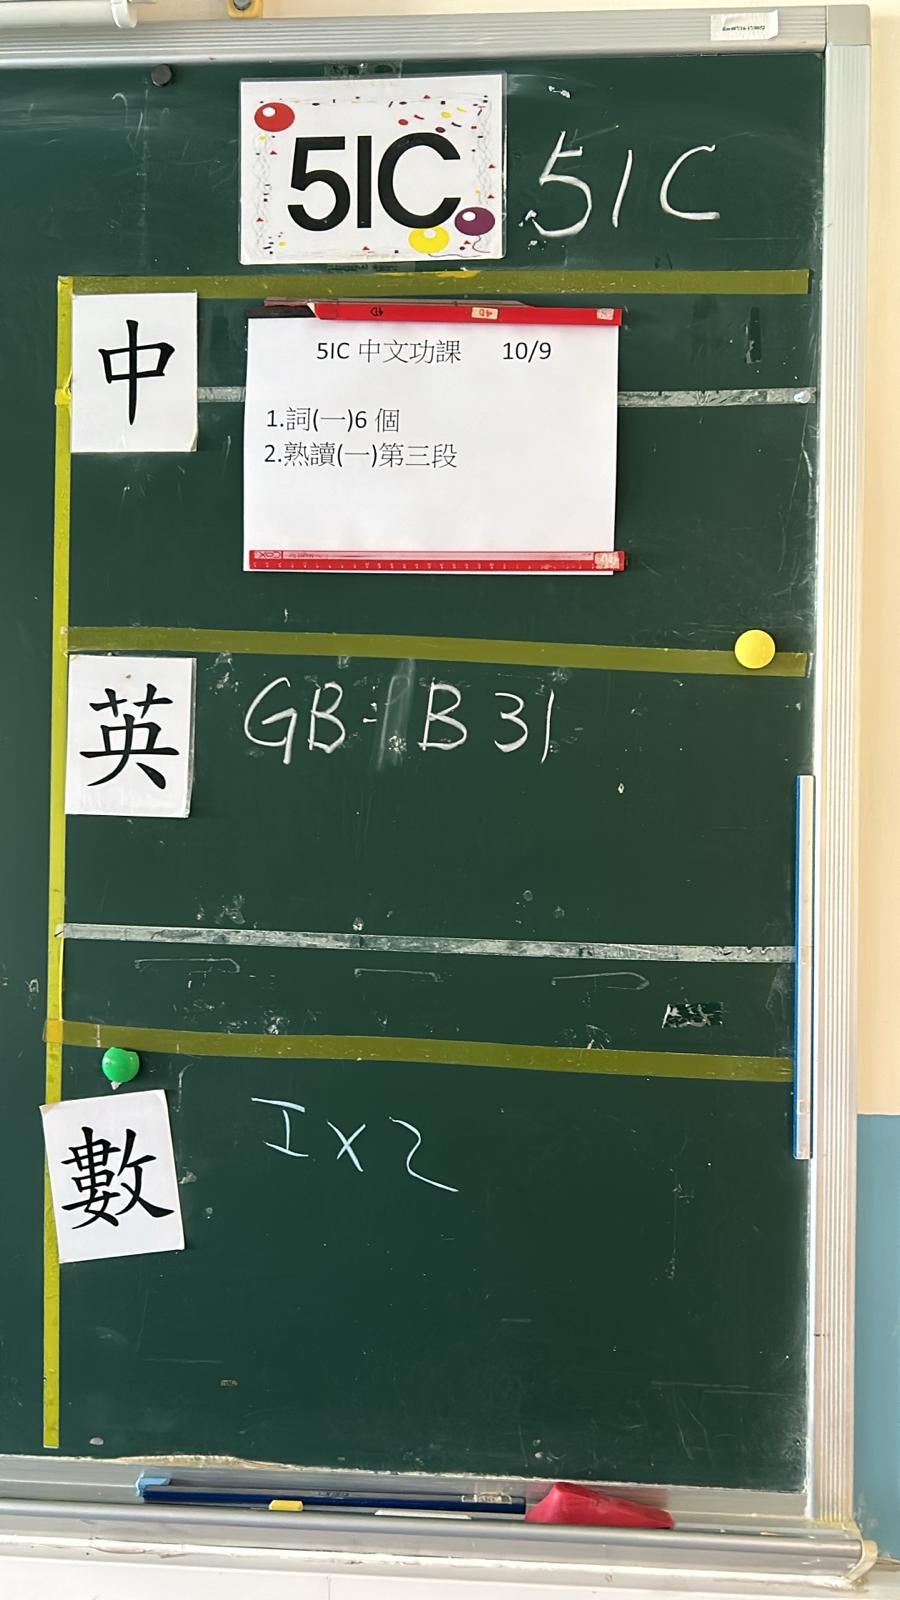 5IC
5IC
中
5IC 中文功課 10/9
1.詞(一)6 個
2.熟讀(一)第三段
英
GB - B 31
數
I x 2